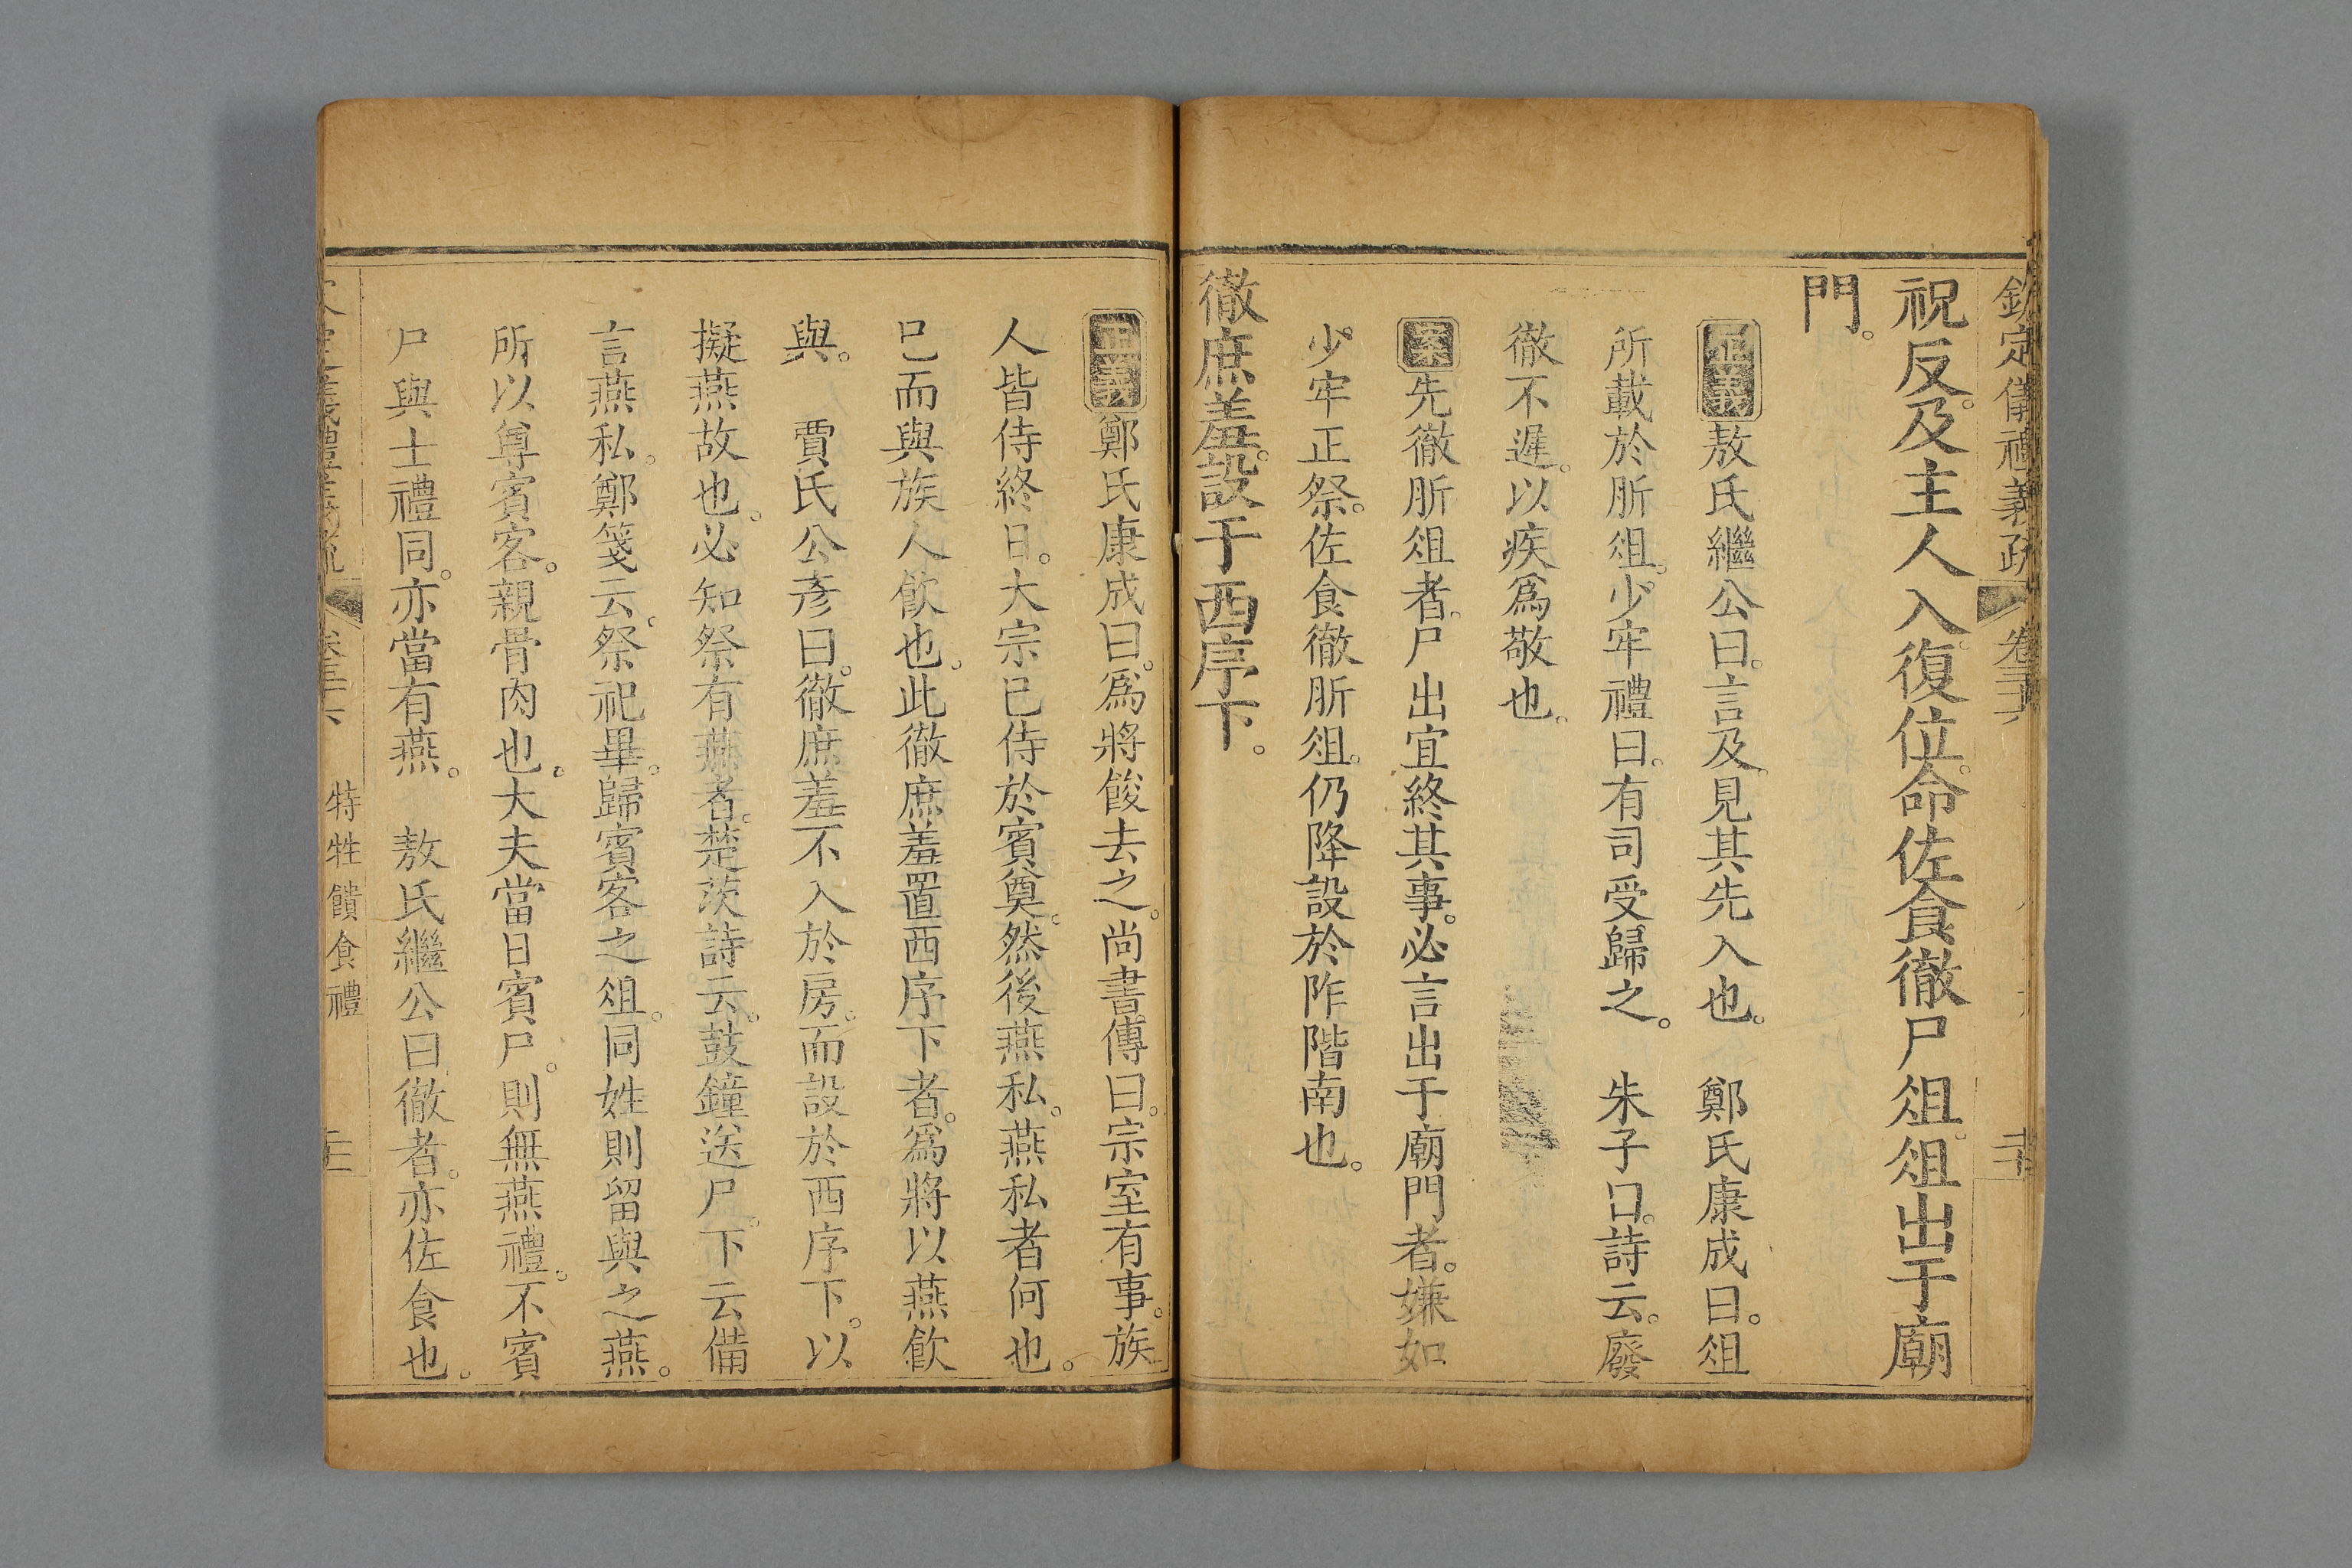 欽定儀禮義疏
祝反。及主人入。復位。命佐食徹尸俎。俎出于廟
門。
正義敖氏繼公曰。言及。見其先入也。 鄭氏康成曰。俎
所載於肵俎。少牢禮曰。有司受歸之。 朱子曰。詩云。廢
徹不遲。以疾爲敬也。
案先徹肵俎者。尸出宜終其事。必言出于廟門者。嫌如
少牢正祭。佐食徹肵俎。仍降設於阼階南也。
徹庶羞。設于西序下。
正義鄭氏康成曰。爲將餕去之。尚書傳曰。宗室有事。族
人皆侍終日。大宗已侍於賓奠。然後燕私。燕私者何也。
已而與族人飲也。此徹庶羞置西序下者。爲將以燕飲
與。 賈氏公彥曰。徹庶羞不入於房。而設於西序下。以
擬燕故也。必知祭有燕者。楚茨詩云。鼓鐘送尸。下云備
言燕私。鄭箋云。祭祀畢。歸賓客之俎。同姓則留與之燕。
所以尊賓客。親骨肉也。大夫當日賓尸。則無燕禮。不賓
尸與士禮同。亦當有燕。 敖氏繼公曰徹者。亦佐食也。
特牲饋食禮